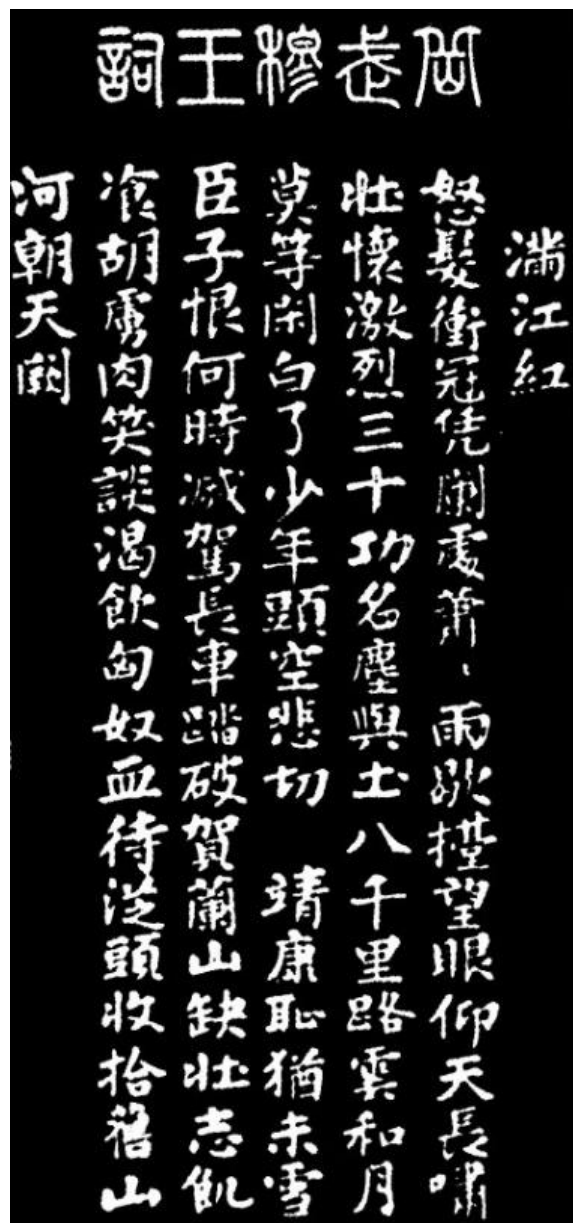 岳武穆王詞
滿江紅
怒髮衝冠凭闌處蕭、雨歇擡望眼仰天長嘯
壯懷激烈三十功名塵與土八千里路雲和月
莫等閑白了少年頭空悲切　靖康恥猶未雪
臣子恨何時滅駕長車踏破賀蘭山缺壯志飢
飡胡虜肉笑談渴飲匈奴血待從頭收拾舊山
河朝天闕